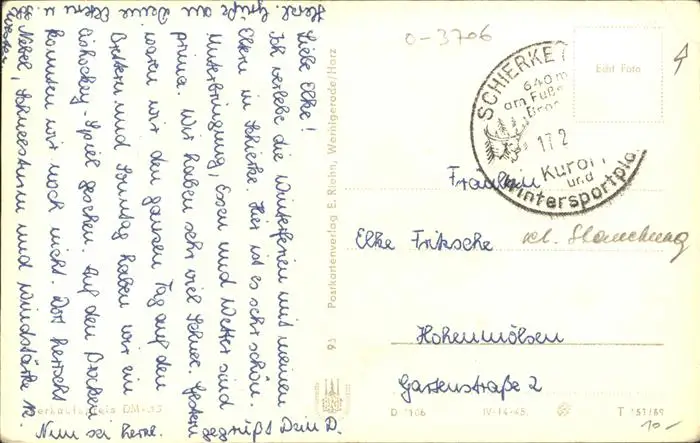 Liebe Elke!
Ich verlebe die Winterferien mit meinen
Eltern in Schierke. Hier ist es sehr schön.
Unterbringung, Essen und Wetter sind
prima. Wir haben sehr viel Schnee. Gestern
waren wir den ganzen Tag auf den
Brettern und Sonntag haben wir ein
Eishockey-Spiel gesehen. Auf den Brocken
konnten wir noch nicht. Dort herrscht
Nebel, Schneesturm und Windstärke 12.
Nun sei herzl. gegrüßt Dein D.
Herzl. Grüße an Deine Eltern u.
93 Postkartenverlag E. Riehn, Wernigerode/Harz
0-3706
SCHIERKE
640 m
am Fuße
Broc
17.2
Kurort
und
Wintersportpla
Echt Foto
Fräulein
Elke Fritzsche
kl. Stauchung
Hohenmölsen
Gartenstraße 2
IV-14-45
T 151/69
10-